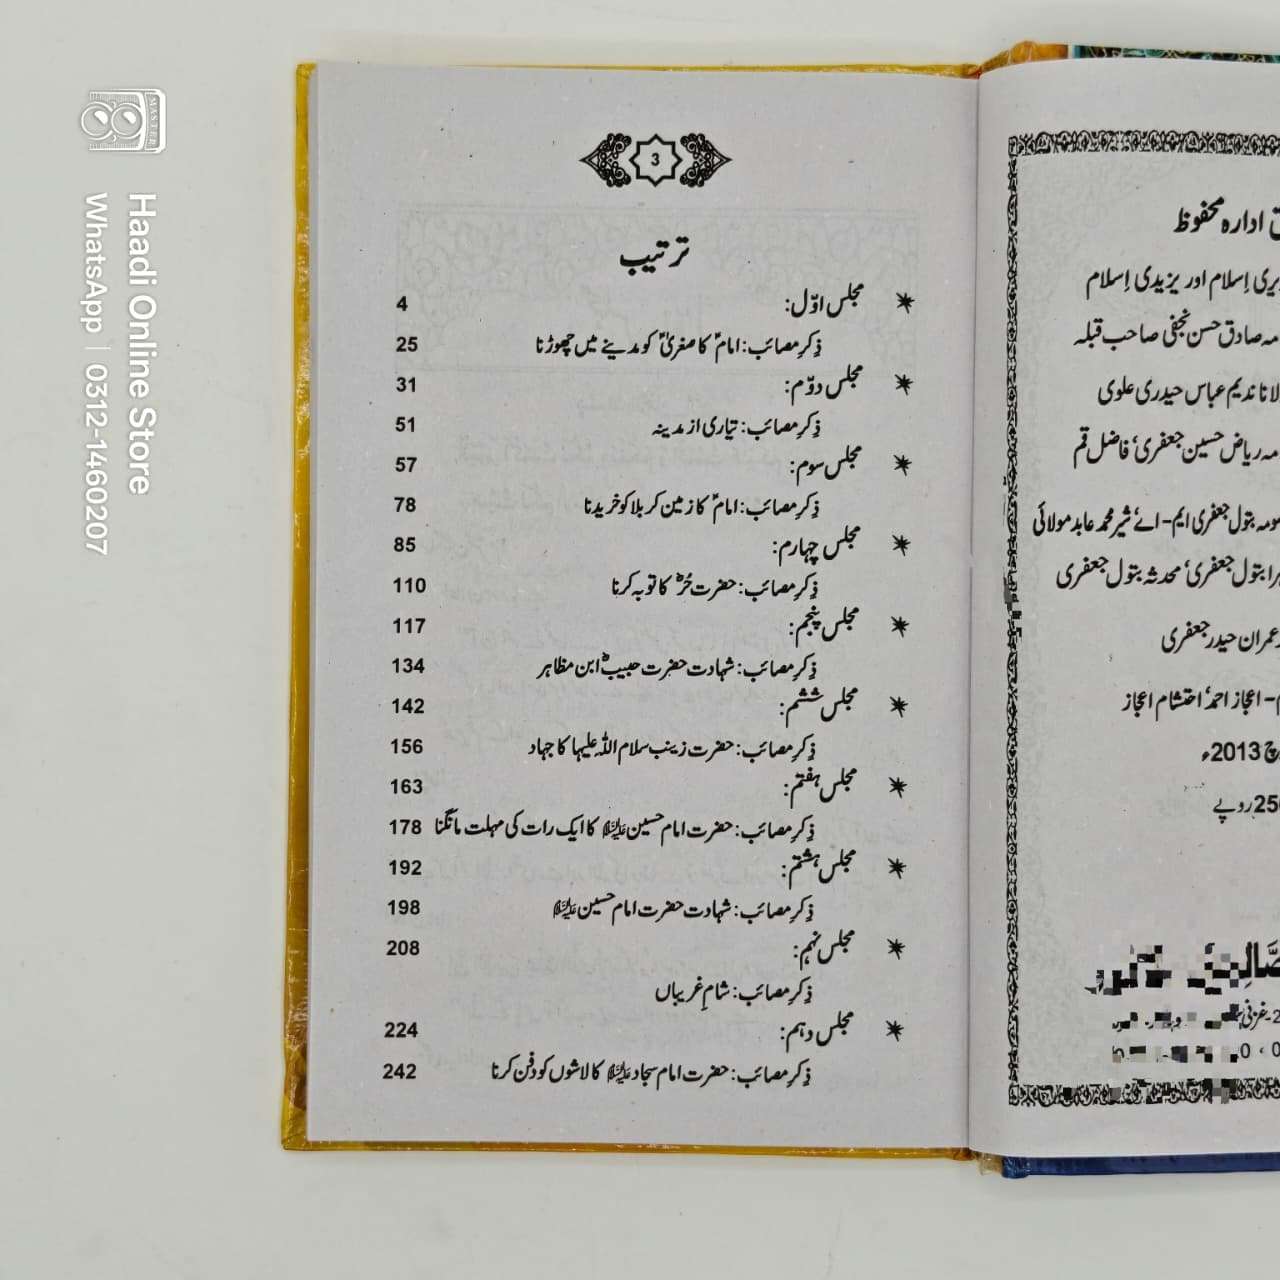 3
ترتیب
مجلس اوّل: 4
ذِکرِ مصائب: امامؑ کا صغریٰؑ کو مدینے میں چھوڑنا 25
مجلس دوّم: 31
ذِکرِ مصائب: تیاری از مدینہ 51
مجلس سوم: 57
ذِکرِ مصائب: امامؑ کا زمین کربلا کو خریدنا 78
مجلس چہارم: 85
ذِکرِ مصائب: حضرت حُرؓ کا توبہ کرنا 110
مجلس پنجم: 117
ذِکرِ مصائب: شہادت حضرت حبیبؓ ابن مظاہر 134
مجلس ششم: 142
ذِکرِ مصائب: حضرت زینب سلام اللہ علیہا کا جہاد 156
مجلس ہفتم: 163
ذِکرِ مصائب: حضرت امام حسین علیہ السلام کا ایک رات کی مہلت مانگنا 178
مجلس ہشتم: 192
ذِکرِ مصائب: شہادت حضرت امام حسین علیہ السلام 198
مجلس نہم: 208
ذِکرِ مصائب: شامِ غریباں
مجلس دہم: 224
ذِکرِ مصائب: حضرت امام سجاد علیہ السلام کا لاشوں کو دفن کرنا 242
ادارہ محفوظ
اِسلام اور یزیدی اِسلام
صادق حسن نجفی صاحب قبلہ
ندیم عباس حیدری علوی
ریاض حسین جعفری، فاضل قم
بتول جعفری ایم-اے، شیر محمد عابد مولائی
بتول جعفری، محدثہ بتول جعفری
عمران حیدر جعفری
اعجاز احمد، احتشام اعجاز
2013ء
روپے
Haadi Online Store
WhatsApp | 0312-1460207
MASTER